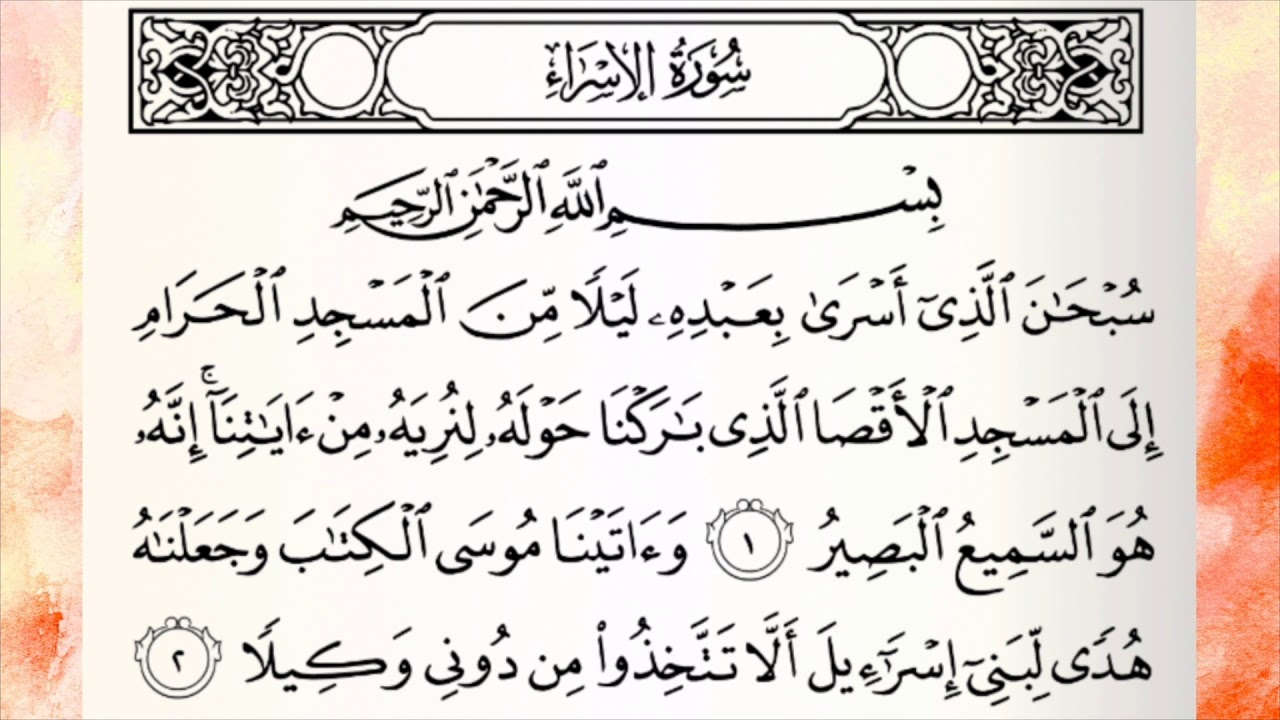 سُورَةُ الإِسْرَاءِ
بِسْمِ ٱللَّهِ ٱلرَّحْمَٰنِ ٱلرَّحِيمِ
سُبْحَٰنَ ٱلَّذِىٓ أَسْرَىٰ بِعَبْدِهِۦ لَيْلًا مِّنَ ٱلْمَسْجِدِ ٱلْحَرَامِ
إِلَى ٱلْمَسْجِدِ ٱلْأَقْصَا ٱلَّذِى بَٰرَكْنَا حَوْلَهُۥ لِنُرِيَهُۥ مِنْ ءَايَٰتِنَآ ۚ إِنَّهُۥ
هُوَ ٱلسَّمِيعُ ٱلْبَصِيرُ ١ وَءَاتَيْنَا مُوسَى ٱلْكِتَٰبَ وَجَعَلْنَٰهُ
هُدًى لِّبَنِىٓ إِسْرَٰٓءِيلَ أَلَّا تَتَّخِذُوا۟ مِن دُونِى وَكِيلًا ٢